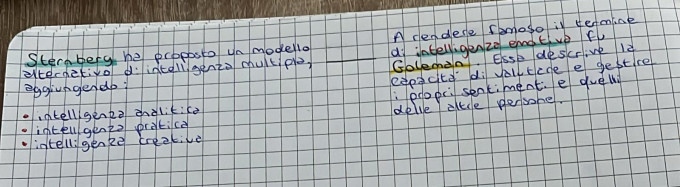 Sternberg ha proposto un modello
alternativo di intelligenza multipla,
aggiungendo:
• intelligenza analitica
• intelligenza pratica
• intelligenza creativa
A rendere famoso il termine
di intelligenza emotiva fu
Goleman. Essa descrive la
capacità di valutare e gestire
i propri sentimenti e quelli
delle altre persone.